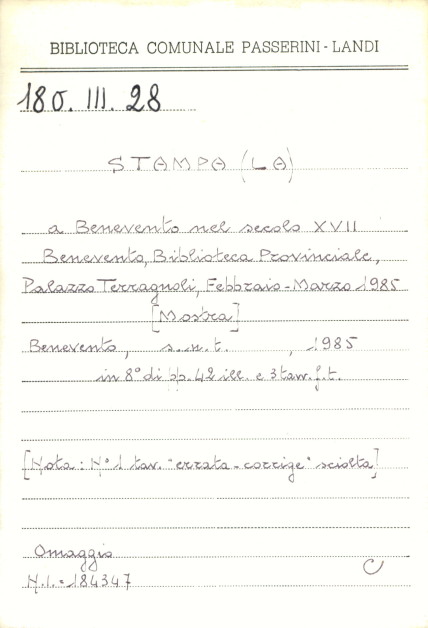 BIBLIOTECA COMUNALE PASSERINI-LANDI
180. III. 28
STAMPA (LA)
a Benevento nel secolo XVII
Benevento, Biblioteca Provinciale,
Palazzo Terragnoli, Febbraio-Marzo 1985
[Mostra]
Benevento, s.n.t. , 1985
in 8° di pp. 42 ill. e 3 tav. f.t.
[Nota: N° 1 tav. "errata-corrige" sciolta]
Omaggio
N.I.= 184347
C